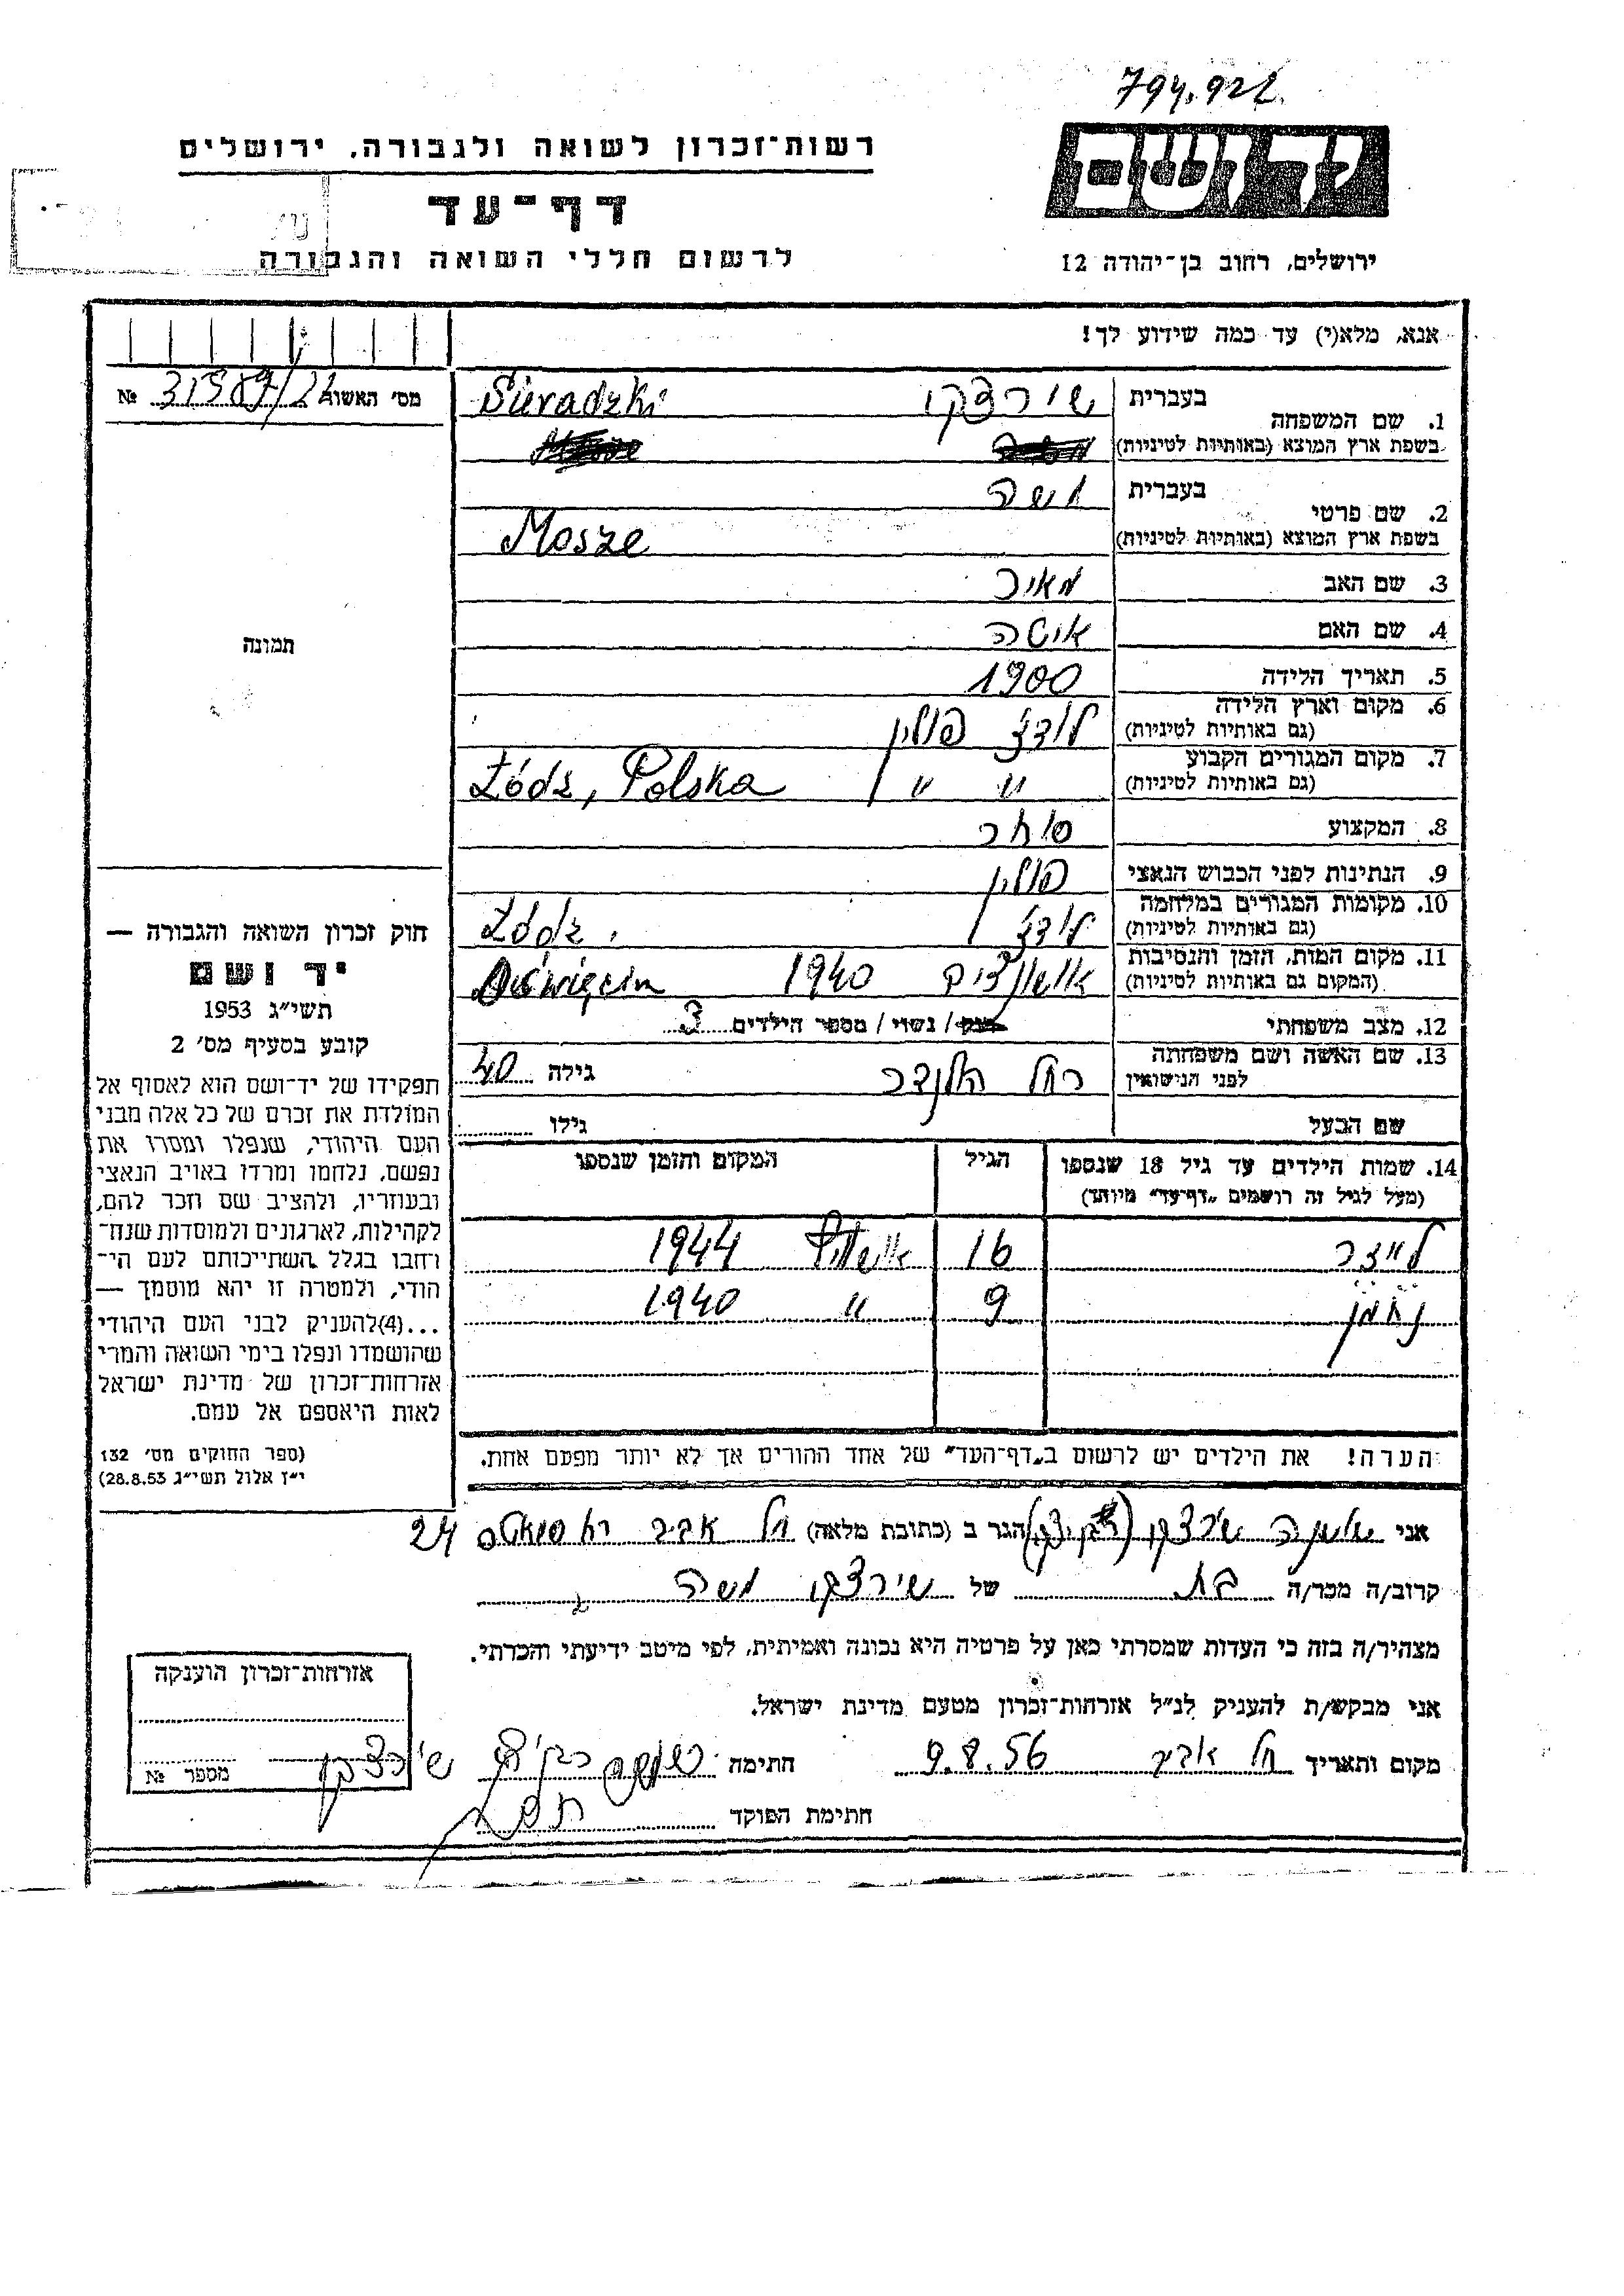 794.922
יד ושם
רשות־זכרון לשואה ולגבורה, ירושלים
דף־עד
לרשום חללי השואה והגבורה
ירושלים, רחוב בן־יהודה 12
אנא, מלא(י) עד כמה שידוע לך!
מס׳ האשור №
1. שם המשפחה בעברית שירדצקי Sieradzki
בשפת ארץ המוצא (באותיות לטיניות)
2. שם פרטי בעברית משה
בשפת ארץ המוצא (באותיות לטיניות) Mosze
3. שם האב מאיר
4. שם האם איטה
5. תאריך הלידה 1900
6. מקום וארץ הלידה לודז׳ פולין
(גם באותיות לטיניות)
7. מקום המגורים הקבוע " " / Łódz, Polska
(גם באותיות לטיניות)
8. המקצוע סוחר
9. הנתינות לפני הכבוש הנאצי פולין
10. מקומות המגורים במלחמה לודז׳ / Łódz.
(גם באותיות לטיניות)
11. מקום המות, הזמן והנסיבות 1940 Oświęcim
(המקום גם באותיות לטיניות)
12. מצב משפחתי רווק / נשוי / מספר הילדים 3
13. שם האשה ושם משפחתה רחל הולנדר גילה 40
לפני הנישואין
שם הבעל גילו
14. שמות הילדים עד גיל 18 שנספו הגיל המקום והזמן שנספו
(מעל לגיל זה רושמים „דף־עד" מיוחד)
לייזר 16 1944
נחמן 9 " 1940
הערה! את הילדים יש לרשום ב„דף־העד" של אחד ההורים אך לא יותר מפעם אחת.
תמונה
חוק זכרון השואה והגבורה —
יד ושם
תשי״ג 1953
קובע בסעיף מס׳ 2
תפקידו של יד־ושם הוא לאסוף אל
המולדת את זכרם של כל אלה מבני
העם היהודי, שנפלו ומסרו את
נפשם, נלחמו ומרדו באויב הנאצי
ובעוזריו, ולהציב שם וזכר להם,
לקהילות, לארגונים ולמוסדות שנח־
רחבו בגלל השתייכותם לעם הי־
הודי, ולמטרה זו יהא מוסמך —
...(4)להעניק לבני העם היהודי
שהושמדו ונפלו בימי השואה והמרי
אזרחות־זכרון של מדינת ישראל
לאות היאספם אל עמם.
(ספר החוקים מס׳ 132
י״ז אלול תשי״ג 28.8.53)
אני הגר ב (כתובת מלאה) תל אביב 24
קרוב/ה מכר/ה בת של שירדצקי משה
מצהיר/ה בזה כי העדות שמסרתי כאן על פרטיה היא נכונה ואמיתית, לפי מיטב ידיעתי והכרתי.
אני מבקש/ת להעניק לנ״ל אזרחות־זכרון מטעם מדינת ישראל.
מקום ותאריך תל אביב 9.8.56 חתימה
חתימת הפוקד
אזרחות־זכרון הוענקה
מספר №